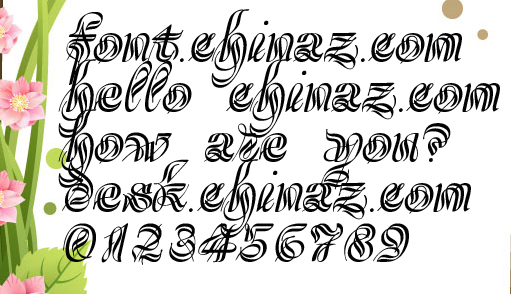 font.chinaz.com
hello chinaz.com
how are you?
desk.chinaz.com
0123456789